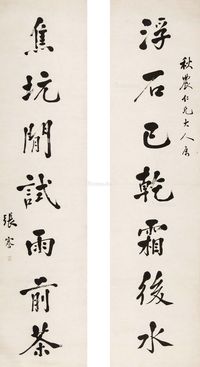 浮石已乾霜後水
秋農仁兄大人屬
焦坑閒試雨前茶
張謇